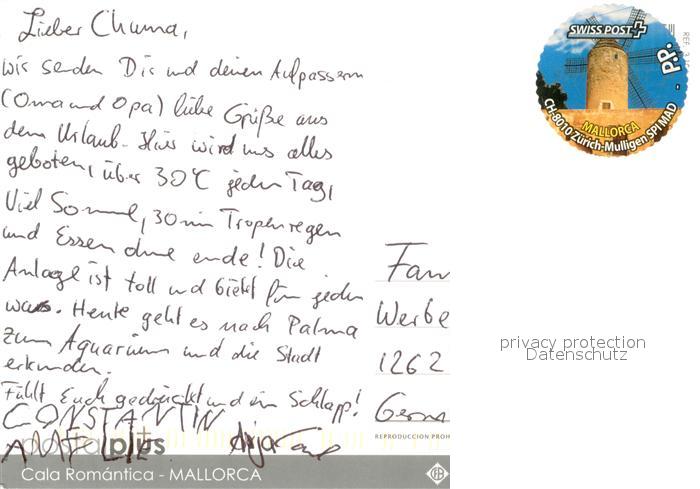 Lieber Chuma,
wir senden Dir und deinen Aufpassern
(Oma und Opa) liebe Grüße aus
dem Urlaub. Hier wird uns alles
geboten, über 30°C jeden Tag,
Viel Sonne, 30 min Tropenregen
und Essen ohne ende! Die
Anlage ist toll und bietet für jeden
was. Heute geht es nach Palma
zum Aquarium und die Stadt
erkunden.
Fühlt Euch gedrückt und ein Schlapp!
CONSTANTIN
AMELIE
Fam
Werbe
1262
Germ
REPRODUCCION PROH
postal plus
Cala Romántica - MALLORCA
SWISS POST
P.P.
MALLORCA
CH-8010 Zürich-Mulligen SPI MAD
privacy protection
Datenschutz